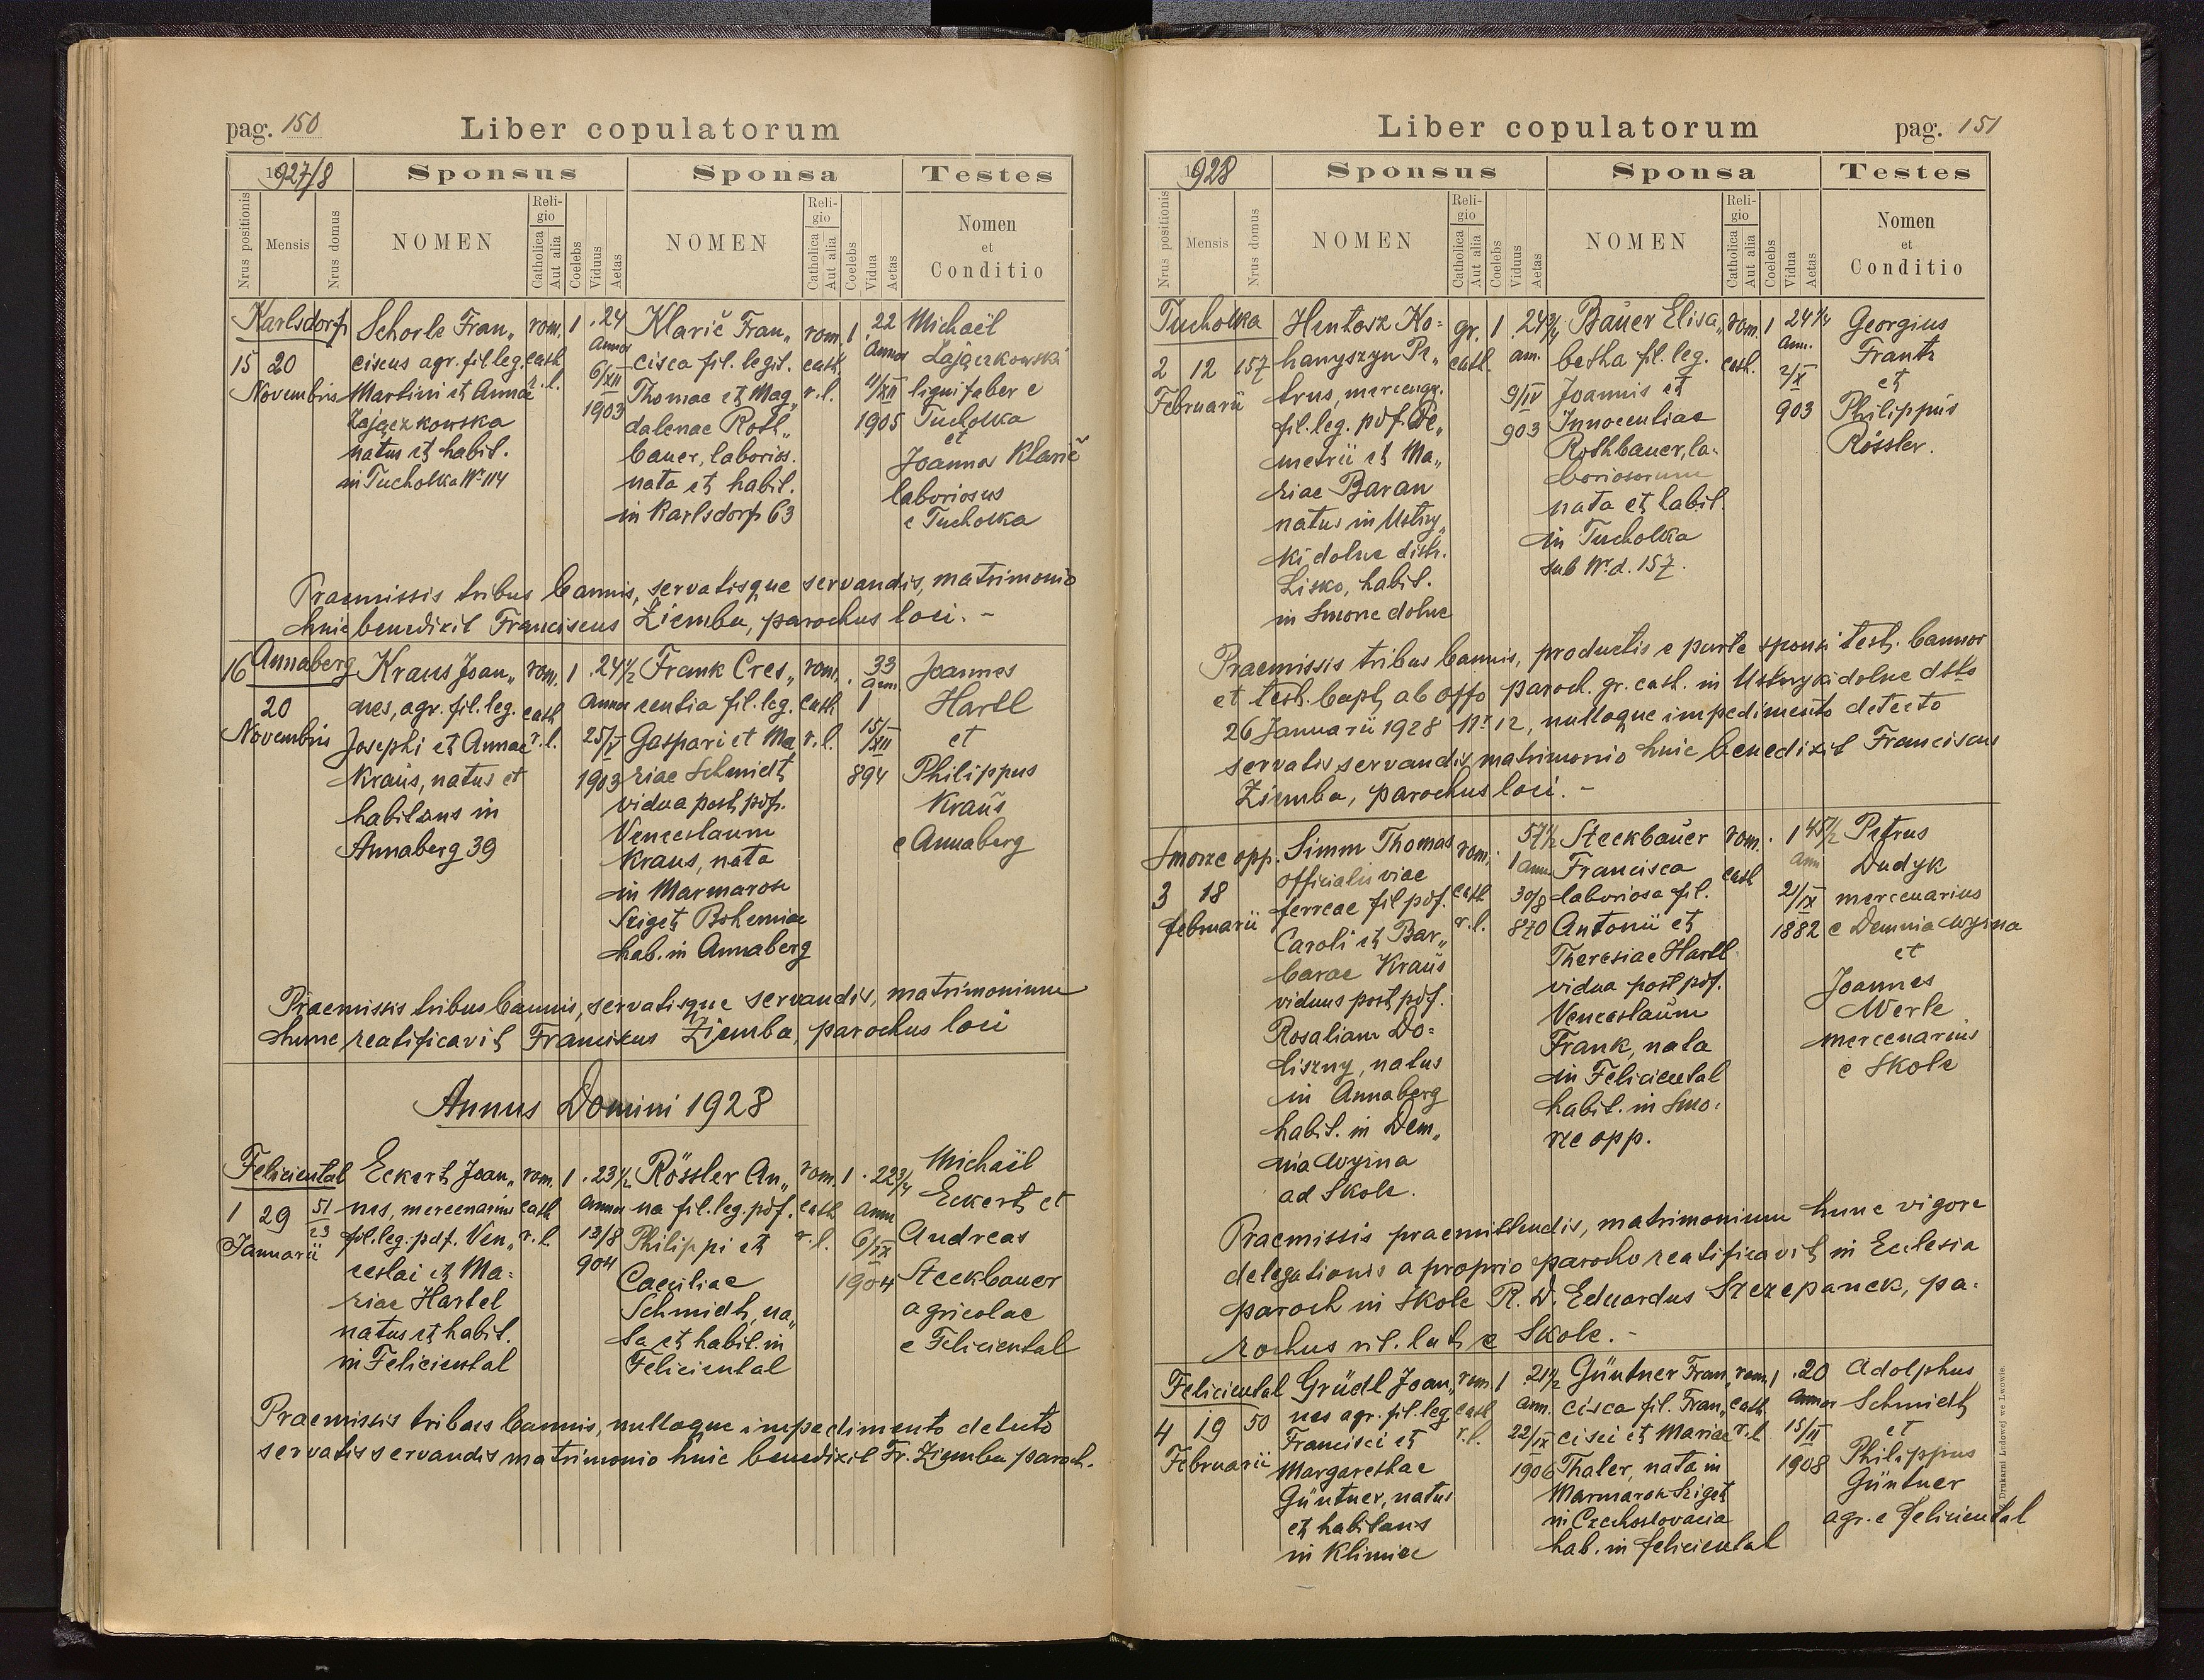 pag. 150 Liber copulatorum
1927/8 Sponsus Sponsa Testes
Nrus positionis Mensis Nrus domus NOMEN Religio Catholica Aut alia Coelebs Viduus Aetas NOMEN Religio Catholica Aut alia Coelebs Vidua Aetas Nomen et Conditio
Karlsdorf
15 20
Novembris
Schorle Fran„
ciscus agr. fil. leg.
Martini et Annae
Zajączkowska
natus et habit.
in Tucholka Nr 114
rom.
cath
r. l.
1
. 24
Annor
6/XII
1903
Klarič Fran„
cisca fil. legit.
Thomae et Mag„
dalenae Rotl„
bauer, laborios.
nata et habit.
in Karlsdorf 63
rom.
cath
r. l.
1
. 22
Annor
4/XII
1905
Michaël
Zajączkowski
lignifaber e
Tucholka
et
Joannes Klarič
laboriosus
e Tucholka
Praemissis tribus bannis, servatisque servandis, matrimonio
huic benedixit Franciscus Ziemba, parochus loci. –
16 Annaberg
20
Novembris
Kraus Joan„
nes, agr. fil. leg.
Josephi et Annae
Kraus, natus et
habitans in
Annaberg 39
rom.
cath
r. l.
1
. 24½
Annor
25/V
1903
Frank Cres„
centia fil. leg.
Gaspari et Ma
riae Schmidt
vidua post pdf.
Venceslaum
Kraus, nata
in Marmarosz
Sziget Bohemiae
hab. in Annaberg
rom.
cath
r. l.
. 33
ann.
1
15/XII
894
Joannes
Hartl
et
Philippus
Kraus
e Annaberg
Praemissis tribus bannis, servatisque servandis, matrimonium
hunc reatificavit Franciscus Ziemba, parochus loci
Annus Domini 1928
Feliciental
1 29 51
23
Januarii
Eckert Joan„
nes, mercenarius
fil. leg. pdf. Ven„
ceslai et Ma=
riae Hartel
natus et habit.
in Feliciental
rom.
cath
r. l.
1
. 23½
Annor
13/8
904
Rössler An„
na fil. leg. pdf.
Philippi et
Caeciliae
Schmidt, na„
ta et habit. in
Feliciental
rom.
cath
r. l.
1
. 22¾
Annor
6/IX
1904
Michaël
Eckert et
Andreas
Steckbauer
agricolae
e Feliciental
Praemissis tribus bannis, nulloque impedimento detecto
servatis servandis matrimonio huic benedixit Fr. Ziemba paroch.
Liber copulatorum pag. 151
1928 Sponsus Sponsa Testes
Nrus positionis Mensis Nrus domus NOMEN Religio Catholica Aut alia Coelebs Viduus Aetas NOMEN Religio Catholica Aut alia Coelebs Vidua Aetas Nomen et Conditio
Tucholka
2 12 157
Februarii
Hentosz Ko=
hanyszyn Pe„
trus, mercenar.
fil. leg. pdf. De„
metrii et Ma„
riae Baran
natus in Ustrzy„
ki dolne distr.
Lisko, habit.
in Smorze dolne
gr.
cath.
1
. 24¾
ann.
9/IV
903
Bauer Elisa„
betha fil. leg.
Joannis et
Innocentiae
Rothbauer, la=
boriosorum
nata et habit.
in Tucholka
sub Nr. d. 157.
rom.
cath.
1
24¼
Ann.
2/X
903
Georgius
Frantz
et
Philippus
Rössler.
Praemissis tribus bannis, productis e parte sponsi test. bannor
et test. bapt. ab offo paroch. gr. cath. in Ustrzyki dolne dsto
26 Januarii 1928 Nr 12, nulloque impedimento detecto
servatis servandis matrimonio huic benedixit Franciscus
Ziemba, parochus loci. –
Smorze opp.
3 18
februarii
Simm Thomas
officialis viae
ferreae fil pdf.
Caroli et Bar„
barae Kraus
viduus post pdf.
Rosaliam Do=
liszny, natus
in Annaberg
habit. in Dem„
nia wyżna
ad Skole.
rom.
cath
r. l.
57½
1 ann
30/8
870
Steckbauer
Francisca
laboriosa fil.
Antonii et
Theresiae Hartl
vidua post pdf.
Venceslaum
Frank, nata
in Feliciental
habit. in Smo=
rze opp.
rom.
cath
. 1
45½
ann
2/IX
1882
Petrus
Dudyk
mercenarius
e Demnia wyżna
et
Joannes
Werle
mercenarius
e Skole
Praemissis praemittendis, matrimonium hunc vigore
delegationis a proprio parocho reatificavit in Ecclesia
paroch in Skole R. D. Eduardus Szczepanek, pa=
rochus rit. lat. e Skole. –
Feliciental
4 19 50
Februarii
Grüdl Joan„
nes agr. fil. leg
Francisci et
Margarethae
Güntner, natus
et habitans
in Klimiec
rom.
cath
r. l.
1
. 21½
ann.
22/IX
1906
Güntner Fran„
cisca fil. Fran„
cisci et Mariae
Thaler, nata in
Marmarosz Sziget
in Czechoslovacia
hab. in feliciental
rom.
cath
r. l
1
. 20
Annor
15/II
1908
Adolphus
Schmidt
et
Philippus
Güntner
agr. e feliciental
Drukarni Ludowej we Lwowie.